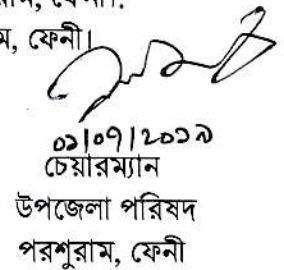 ম, ফেনী।
০১|০৭|২০১৯
চেয়ারম্যান
উপজেলা পরিষদ
পরশুরাম, ফেনী